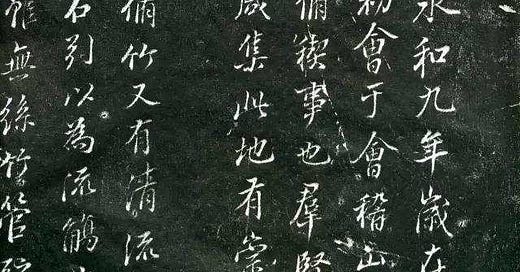 永和九年歲在
初會于會稽山
脩稧事也羣賢
咸集此地有崇
脩竹又有清流
右引以為流觴
雖無絲竹管弦